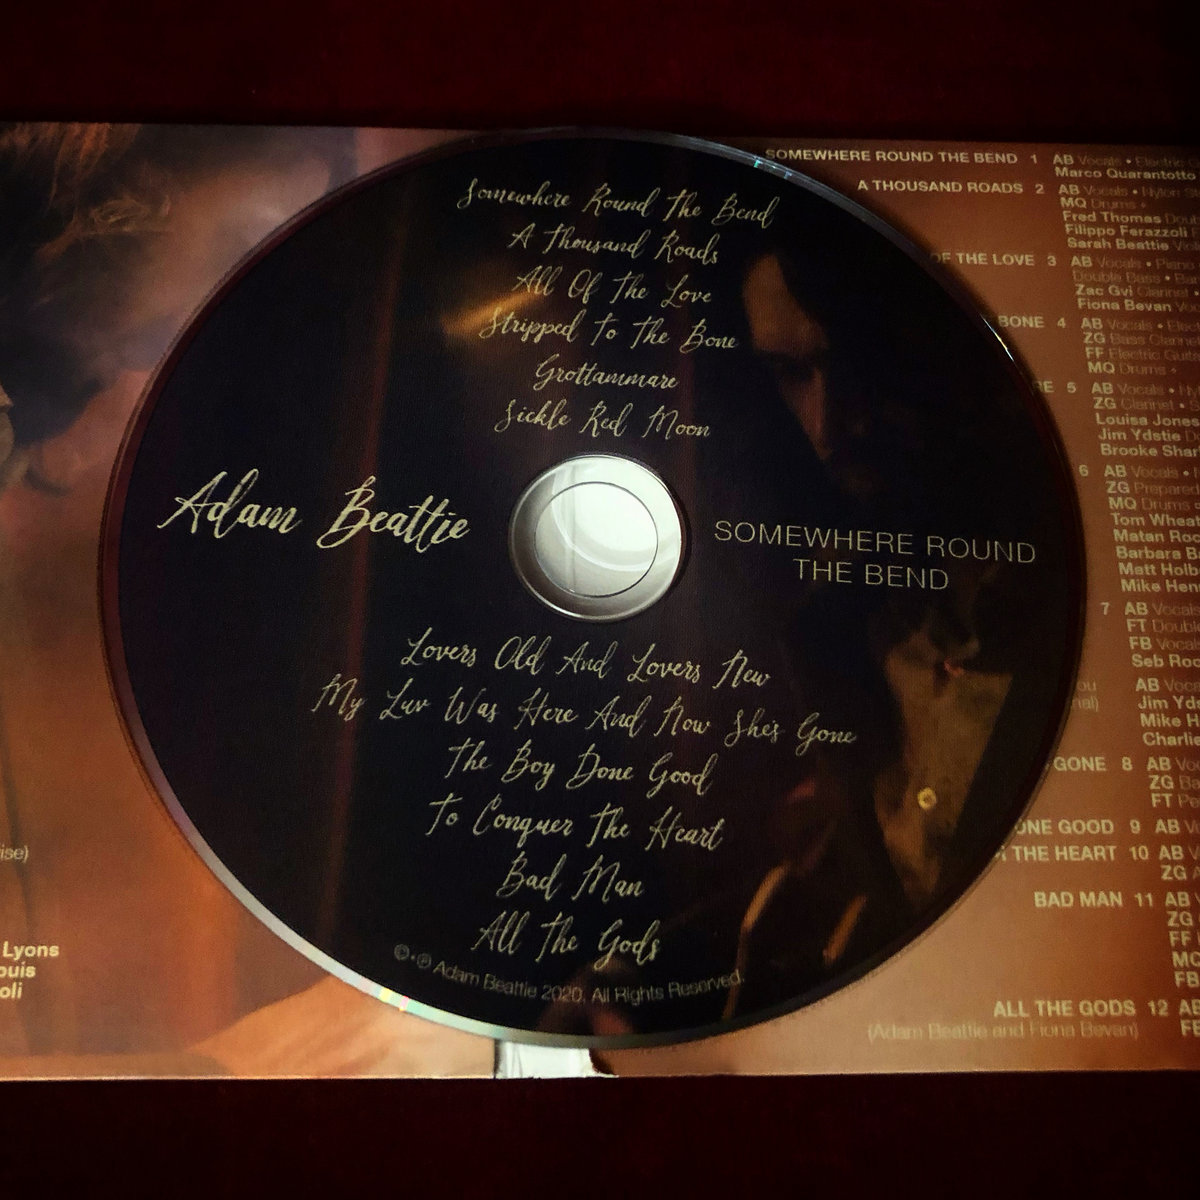 Somewhere Round The Bend
A Thousand Roads
All Of The Love
Stripped To The Bone
Grottammare
Sickle Red Moon
Adam Beattie
SOMEWHERE ROUND
THE BEND
Lovers Old And Lovers New
My Luv Was Here And Now She's Gone
The Boy Done Good
To Conquer The Heart
Bad Man
All The Gods
©•℗ Adam Beattie 2020. All Rights Reserved.
SOMEWHERE ROUND THE BEND 1 AB Vocals • Electric
Marco Quarantotto
A THOUSAND ROADS 2 AB Vocals • Nylon
MQ Drums •
Fred Thomas
Filippo Ferazzoli
Sarah Beattie
OF THE LOVE 3 AB Vocals • Piano
Double Bass •
Zac Gvi Clarinet •
Fiona Bevan
BONE 4 AB Vocals •
ZG Bass Clarinet
FF Electric
MQ Drums •
5 AB Vocals •
ZG Clarinet •
Louisa Jones
Jim Ydstie
Brooke
6 AB Vocals •
ZG
MQ Drums
Tom
Matan
Barbara
Matt
Mike
7 AB Vocals
FT
FB Vocals
Seb
AB Vocals
Jim
Mike
Charlie
GONE 8 AB
ZG
FT
GOOD 9 AB
THE HEART 10 AB
ZG
BAD MAN 11 AB
ZG
FF
MQ
FB
ALL THE GODS 12
(Adam Beattie and Fiona Bevan)
Lyons